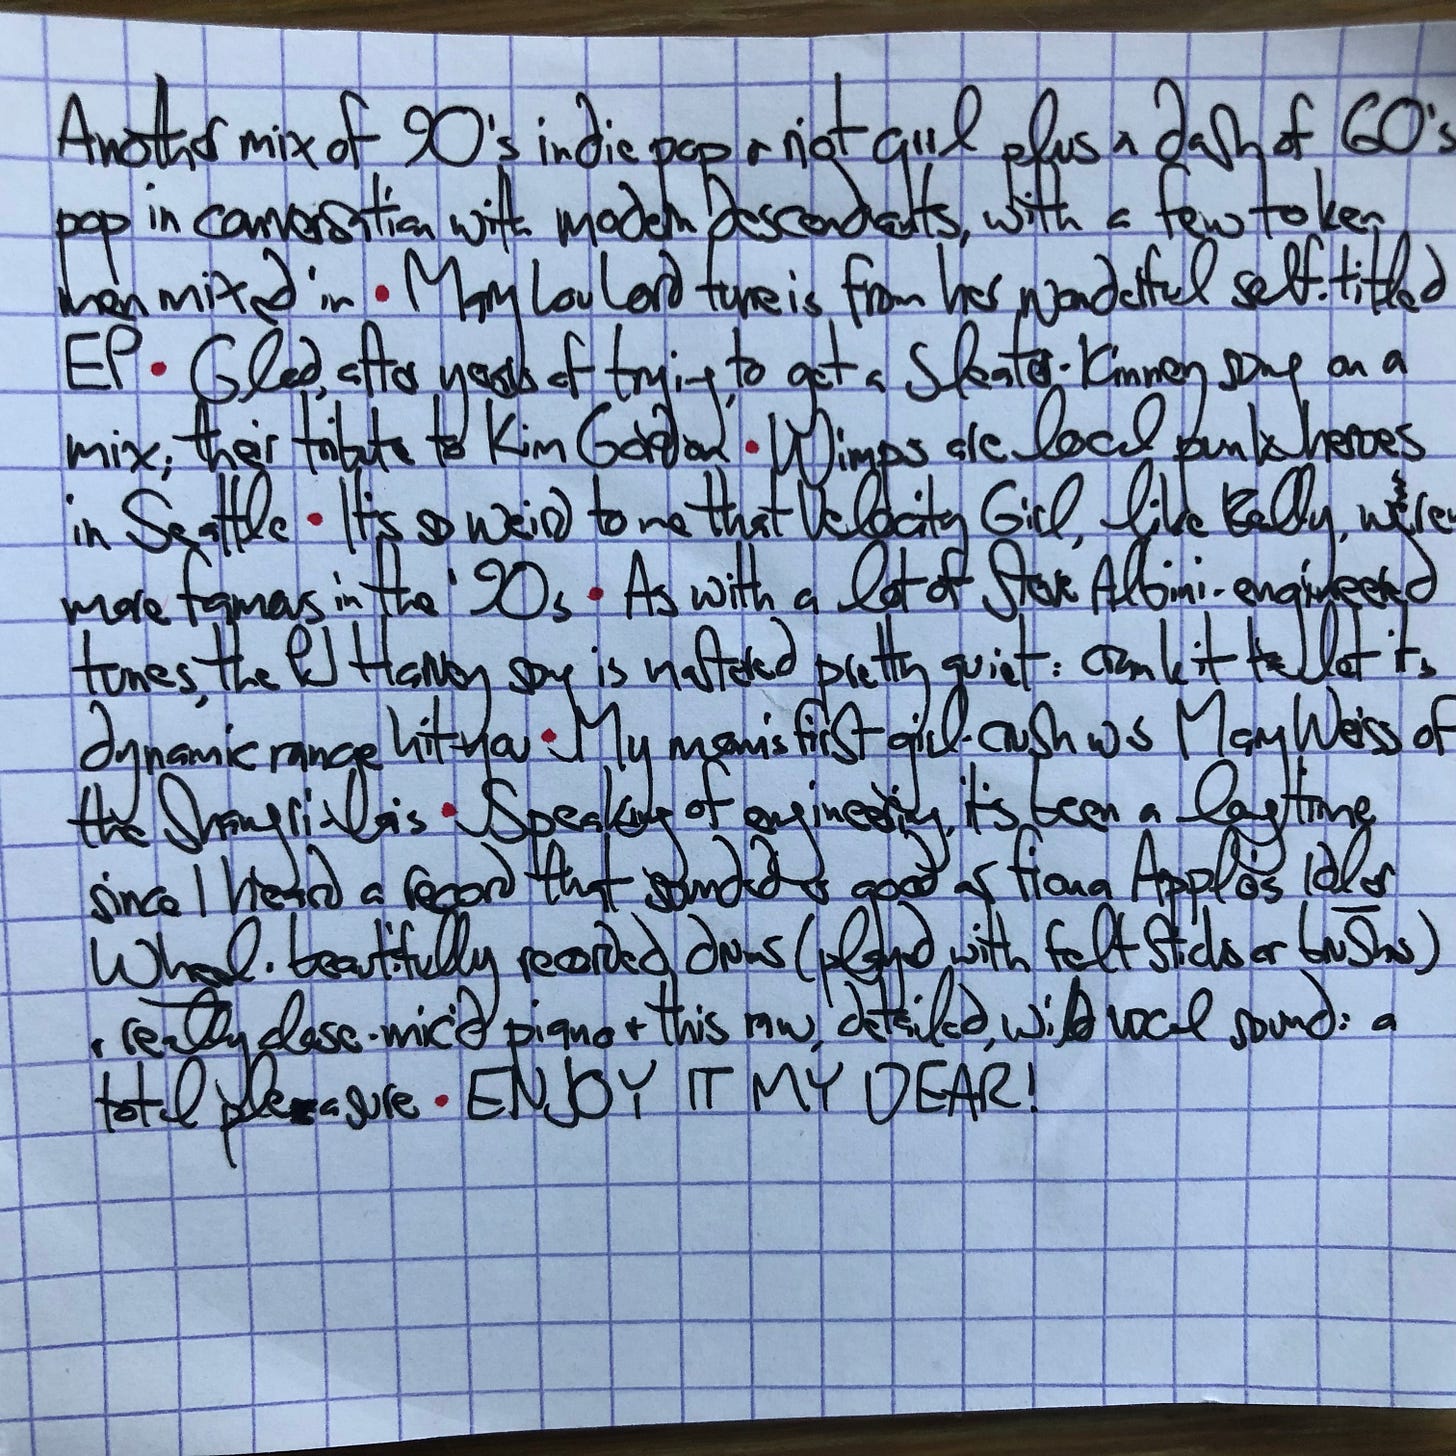 Another mix of 90's indie pop + riot grrl plus a dash of 60's
pop in conversation with modern descendants, with a few token
men mixed in • Mary Lou Lord tune is from her wonderful self-titled
EP • Glad, after years of trying, to get a Sleater-Kinney song on a
mix; their tribute to Kim Gordon • Wimps are local punk heroes
in Seattle • It's so weird to me that Velocity Girl, like Belly, weren
more famous in the '90s • As with a lot of Steve Albini-engineered
tunes, the PJ Harvey song is mastered pretty quiet: crank it to let its
dynamic range hit you • My mom's first girl-crush was Mary Weiss of
the Shangri-las • Speaking of engineering, it's been a long time
since I heard a record that sounded as good as Fiona Apple's Idler
Wheel. beautifully recorded drums (played with felt sticks or brushes)
+ really close-mic'd piano + this raw, detailed, wild vocal sound: a
total pleasure • ENJOY IT MY DEAR!